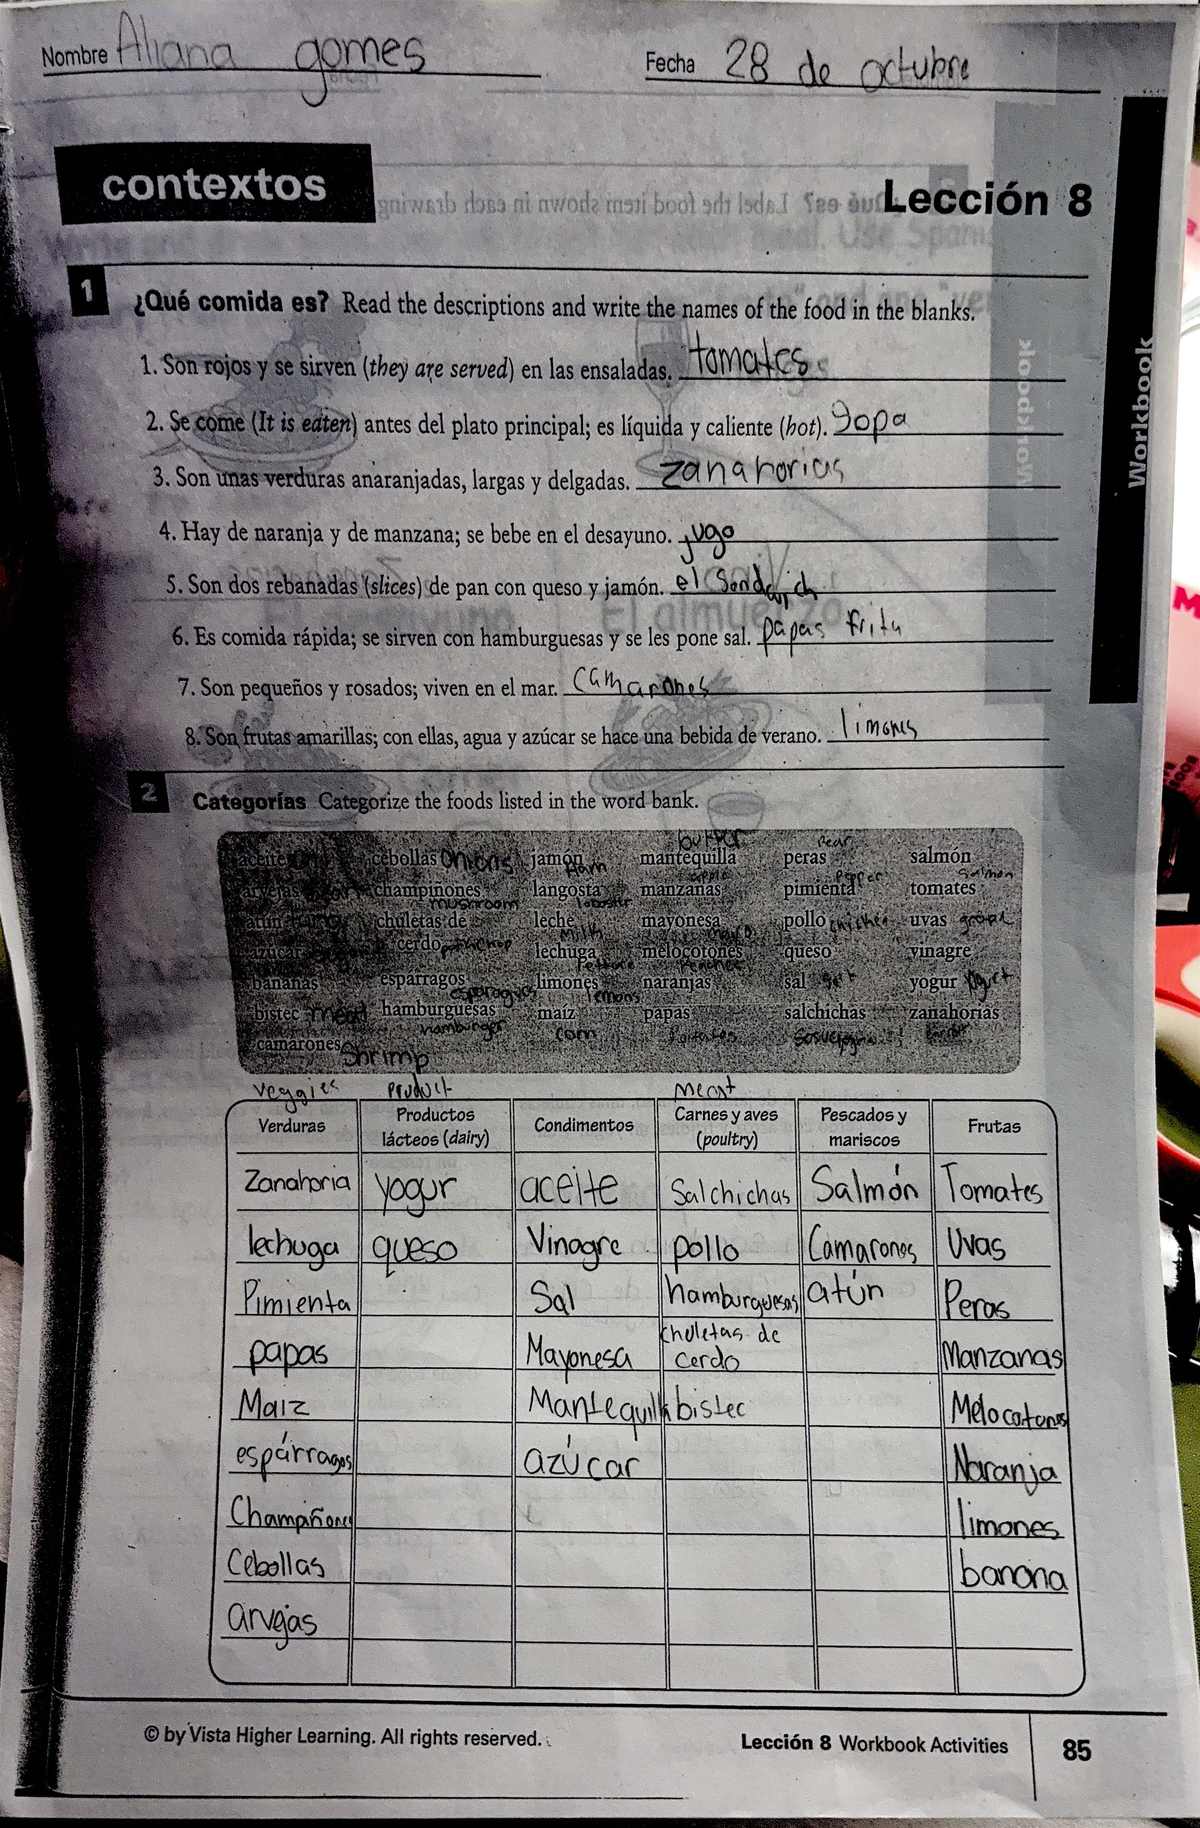 Nombre Aliana gomes Fecha 28 de octubre
contextos Lección 8
Workbook
1 ¿Qué comida es? Read the descriptions and write the names of the food in the blanks.
1. Son rojos y se sirven (they are served) en las ensaladas. tomates
2. Se come (It is eaten) antes del plato principal; es líquida y caliente (hot). sopa
3. Son unas verduras anaranjadas, largas y delgadas. zanahorias
4. Hay de naranja y de manzana; se bebe en el desayuno. jugo
5. Son dos rebanadas (slices) de pan con queso y jamón. el Sandwich
6. Es comida rápida; se sirven con hamburguesas y se les pone sal. papas frita
7. Son pequeños y rosados; viven en el mar. camarones
8. Son frutas amarillas; con ellas, agua y azúcar se hace una bebida de verano. limones
2 Categorías Categorize the foods listed in the word bank.
butter
aceite cebollas Onions jamón Ham mantequilla peras pear salmón Salmon
arvejas champiñones mushroom langosta lobster manzanas apple pimienta Pepper tomates
atún chuletas de leche Milk mayonesa mayo pollo chicken uvas grape
azúcar cerdo lechuga melocotones queso vinagre
bananas espárragos limones lemons naranjas sal yogur yogurt
bistec meat hamburguesas hamburger maíz corn papas salchichas zanahorias
camarones Shrimp
veggies product meat
Verduras Productos lácteos (dairy) Condimentos Carnes y aves (poultry) Pescados y mariscos Frutas
Zanahoria yogur aceite Salchichas Salmón Tomates
lechuga queso Vinagre pollo Camarones Uvas
Pimienta Sal hamburguesas atún Peras
papas Mayonesa chuletas de cerdo Manzanas
Maiz Mantequilla bistec Melocotones
espárragos azúcar Naranja
Champiñones limones
Cebollas banana
arvejas
© by Vista Higher Learning. All rights reserved. Lección 8 Workbook Activities 85